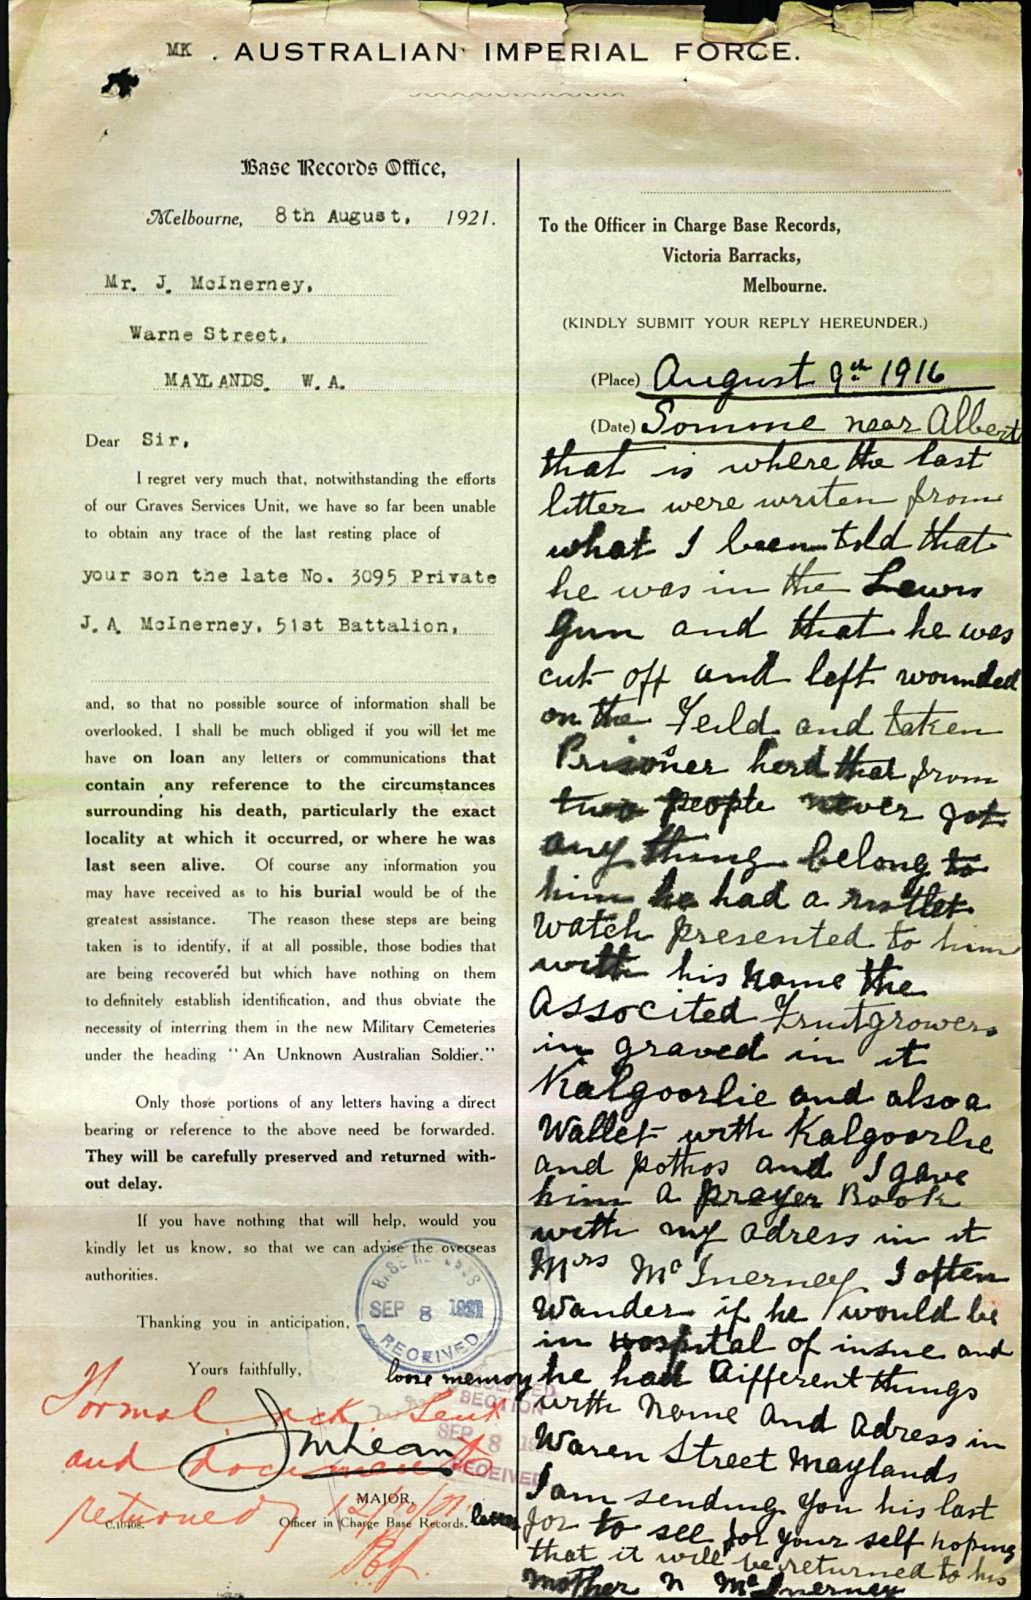 MK . AUSTRALIAN IMPERIAL FORCE.
Base Records Office,
Melbourne, 8th August, 1921.
Mr. J. McInerney,
Warne Street,
MAYLANDS. W.A.
Dear Sir,
I regret very much that, notwithstanding the efforts
of our Graves Services Unit, we have so far been unable
to obtain any trace of the last resting place of
your son the late No. 3095 Private
J.A. McInerney, 51st Battalion,
and, so that no possible source of information shall be
overlooked, I shall be much obliged if you will let me
have on loan any letters or communications that
contain any reference to the circumstances
surrounding his death, particularly the exact
locality at which it occurred, or where he was
last seen alive. Of course any information you
may have received as to his burial would be of the
greatest assistance. The reason these steps are being
taken is to identify, if at all possible, those bodies that
are being recovered but which have nothing on them
to definitely establish identification, and thus obviate the
necessity of interring them in the new Military Cemeteries
under the heading "An Unknown Australian Soldier."
Only those portions of any letters having a direct
bearing or reference to the above need be forwarded.
They will be carefully preserved and returned with-
out delay.
If you have nothing that will help, would you
kindly let us know, so that we can advise the overseas
authorities.
Thanking you in anticipation,
Yours faithfully,
BASE RECORDS
SEP 8 1921
RECEIVED
SECTION
SEP 8
RECEIVED
Formal ack Sent
and documents
returned
JMLean
MAJOR,
Officer in Charge Base Records.
To the Officer in Charge Base Records,
Victoria Barracks,
Melbourne.
(KINDLY SUBMIT YOUR REPLY HEREUNDER.)
(Place) August 9th 1916
(Date) Somme near Albert
that is where the last
litter were writen from
what I been told that
he was in the Lewis
Gun and that he was
cut off and left wounded
on the Feild and taken
Prisoner herd that from
two people never got
any thing belong to
him he had a ristlet
watch presented to him
with his name the
Associted Fruitgrowers
in graved in it
Kalgoorlie and also a
Wallet with Kalgoorlie
and pothos and I gave
him a prayer Book
with my adress in it
Mrs McInerney I often
wander if he would be
in hospital of insne and
loose memory he had different things
with name and adress in
Waren Street Maylands
I am sending you his last
letter for to see for your self hoping
that it will be returned to his
mother N McInerney